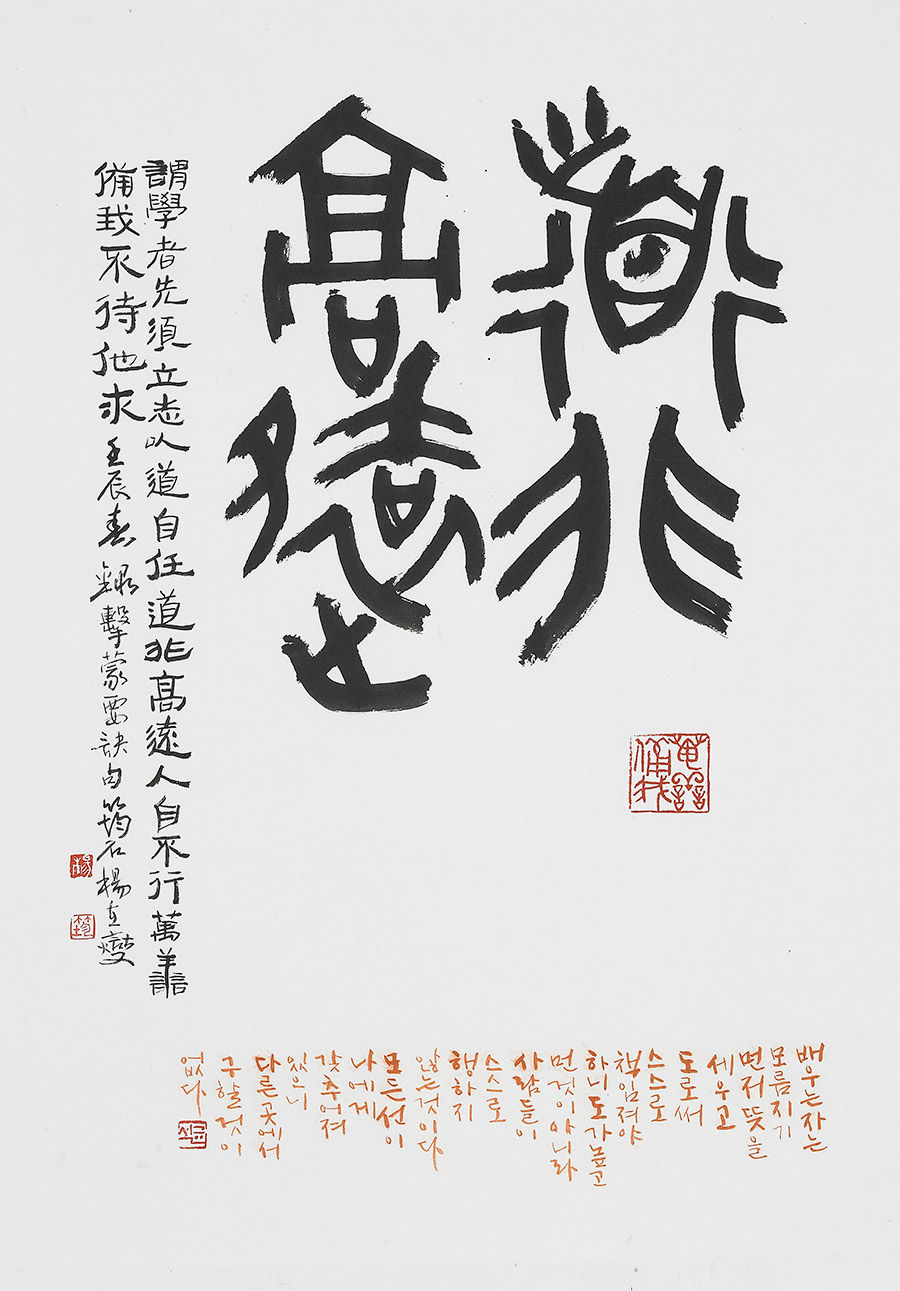 道非
高遠
謂學者先須立志以道自任道非高遠人自不行萬善
備我不待他求 壬辰春 錄擊蒙要訣句 筠石楊
萬善
備我
배우는자는
모름지기
먼저뜻을
세우고
도로써
스스로
책임져야
하니도가높고
먼것이아니라
사람들이
스스로
행하지
않는것이다
모든선이
나에게
갖추어져
있으니
다른곳에서
구할것이
없다